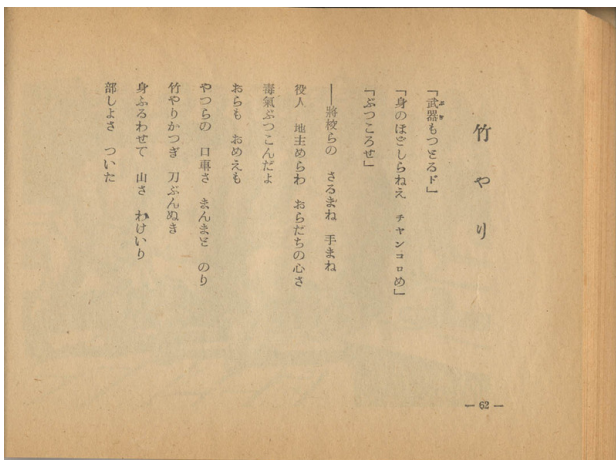 竹やり
「武器もつとるド」
「身のほどしらねえ チヤンコロめ」
「ぶつころせ」
――將校らの さるまね 手まね
役人 地主めらわ おらだちの心さ
毒氣ぶつこんだよ
おらも おめえも
やつらの 口車さ まんまと のり
竹やりかつぎ 刀ぶんぬき
身ふるわせて 山さ わけいり
部しよさ ついた
― 62 ―